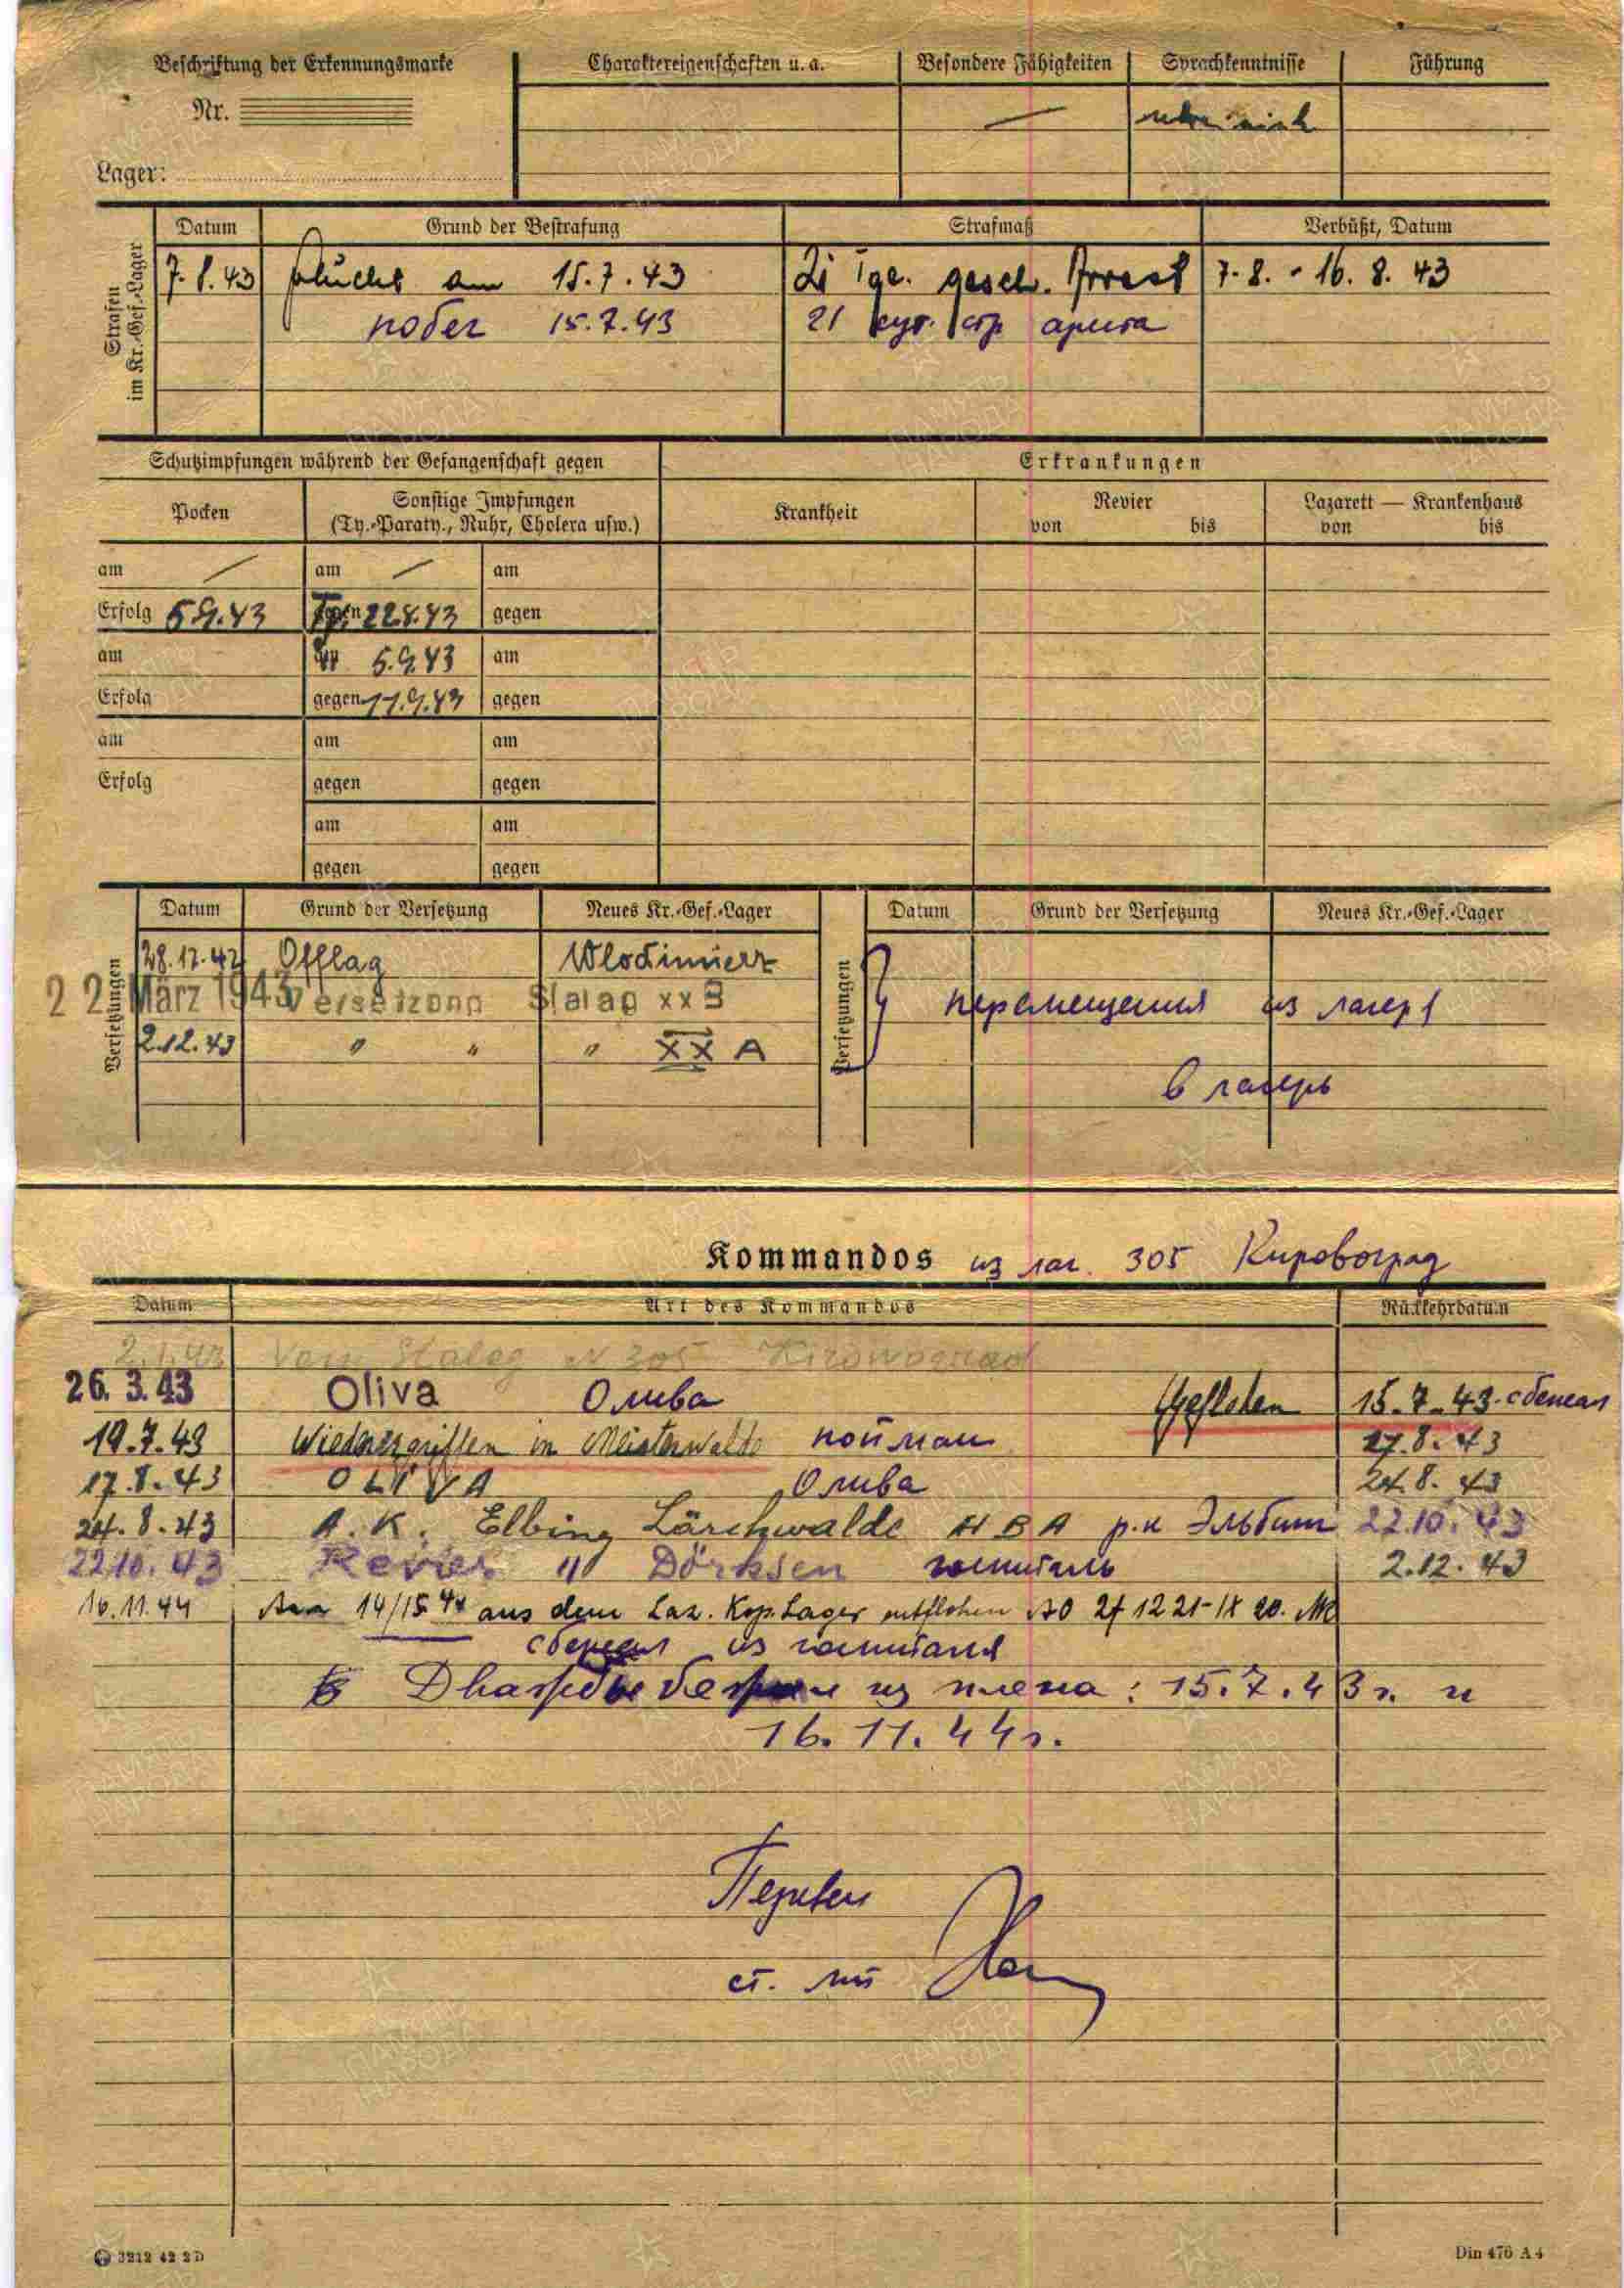 Beschriftung der Erkennungsmarke
Nr.
Lager:
Charaktereigenschaften u. a.
Besondere Fähigkeiten
—
Sprachkenntnisse
Führung
Strafen im Kr.-Gef.-Lager
Datum Grund der Bestrafung Strafmaß Verbüßt, Datum
7.8.43 Flucht am 15.7.43 21 Tge. gesch. Arrest 7.8. - 16.8.43
побег 15.7.43 21 сут. стр ареста
Schutzimpfungen während der Gefangenschaft gegen
Erkrankungen
Pocken
Sonstige Impfungen
(Ty.-Paraty., Ruhr, Cholera usw.)
Krankheit
Revier
von bis
Lazarett — Krankenhaus
von bis
am — am — am
Erfolg 5.9.43 22.8.43 gegen
am 5.9.43 am
Erfolg gegen 11.9.43 gegen
am am am
Erfolg gegen gegen
am am
gegen gegen
Versetzungen
Datum Grund der Versetzung Neues Kr.-Gef.-Lager
28.12.42 Offlag Wlodimierz
22. März 1943 Versetzung Stalag XX B
2.12.43 " " " XX A
Versetzungen
Datum Grund der Versetzung Neues Kr.-Gef.-Lager
перемещения из лагеря
в лагерь
Kommandos из лаг. 305 Кировоград
Datum Art des Kommandos Rückkehrdatum
2.1.43 Vom Stalag N 305 Kirowograd
26. 3. 43 Oliva Олива Geflohen 15.7.43. сбежал
19.7.43 Wiederergriffen in Meisterwalde пойман 17.8.43
17.8.43 OLIVA Олива 24.8.43
24.8.43 A.K. Elbing Lärchwalde HBA р.к Эльбинг 22.10.43
22.10.43 Revier " Dörksen госпиталь 2.12.43
16.11.44 14/15 aus dem Laz. Kop. Lager entflohen
сбежал из госпиталя
Дважды бежал из плена: 15.7.43 г. и
16.11.44 г.
Перевел
ст. л-т
3212 42 2 D
Din 476 A 4